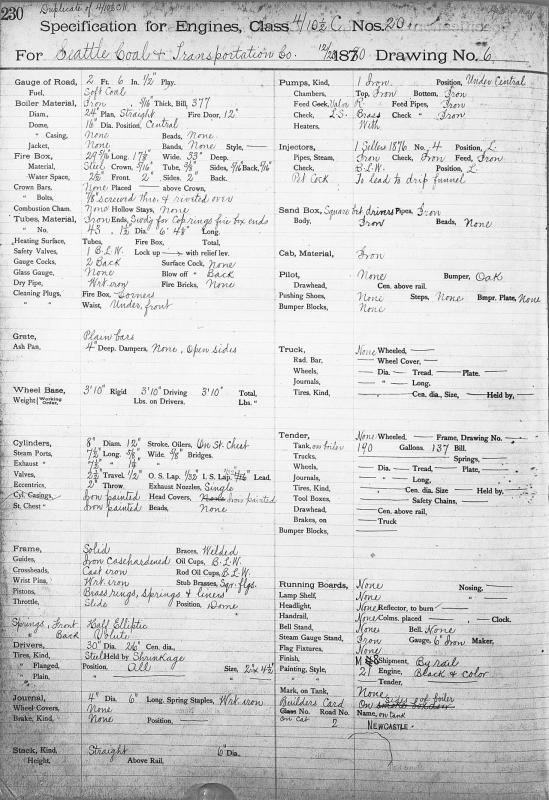 230 Duplicate of 4/10½ C 11
Specification for Engines, Class 4/10½ C, Nos. 20
For Seattle Coal & Transportation Co. 12/20 1880 Drawing No. 6
Gauge of Road, 2 Ft. 6 In. ½" Play.
Fuel, Soft Coal
Boiler Material, Iron, 5/16 Thick, Bill, 377
Diam, 24" Plan, Straight Fire Door, 12"
Dome, 16" Dia. Position, Central
" Casing, None Beads, None
Jacket, None Bands, None Style,
Fire Box, Long. Wide. 33" Deep.
Material, Steel Crown, 5/16" Tube, Sides, Back,
Water Space, 2½" Front 2" Sides. 2" Back.
Crown Bars, None Placed above Crown,
" Bolts, 7/8" screwed thro. & riveted over
Combustion Cham. None Hollow Stays, None
Tubes, Material, Iron Ends, Swdg for Cop rings fire box ends
" No. 43, 1½" Dia. 6' 4 Long.
Heating Surface, Tubes, Fire Box, Total,
Safety Valves, 1 B.L.W. Lock up with relief lev.
Gauge Cocks, 2 Back Surface Cock, None
Glass Gauge, None Blow off " Back
Dry Pipe, Wrt. iron Fire Bricks, None
Cleaning Plugs, Fire Box, Corners
" " Waist, Under, front
Grate, Plain bars
Ash Pan, 4" Deep. Dampers, None, Open sides
Wheel Base, 3'10" Rigid 3'10" Driving 3'10" Total,
Weight Working Order, Lbs. on Drivers, Lbs. "
Cylinders, 8" Diam. 12" Stroke. Oilers, On St. Chest
Steam Ports, 7½" Long. 5/8" Wide. 5/8" Bridges.
Exhaust " 7½" " 1¼"
Valves, 2½" Travel. ½" O. S. Lap. 1/32" I. S. Lap. Lead.
Eccentrics, 2" Throw. Exhaust Nozzles, Single
Cyl. Casings, Iron painted Head Covers, None Iron painted
St. Chest " Iron painted Beads, None
Frame, Solid Braces, Welded
Guides, Iron Casehardened Oil Cups, B.L.W.
Crossheads, Cast iron Rod Oil Cups, B.L.W.
Wrist Pins, Wrt. iron Stub Brasses, Sqr. flgs.
Pistons, Brass rings, springs & liners
Throttle, Slide Position, Dome
Springs, Front Half Elliptic
" Back Volute
Drivers, 30" Dia. 26" Cen. dia.,
Tires, Kind, Steel Held by Shrinkage
" Flanged, Position, All Size, 2 x 4½"
" Plain, " "
Journal, 4" Dia. 6" Long. Spring Staples, Wrt. iron
Wheel Covers, None
Brake, Kind, None Position,
Stack, Kind, Straight 6" Dia.
Height, Above Rail,
Pumps, Kind, 1 Iron Position, Under Central
Chambers, Top, Iron Bottom, Iron
Feed Cock, Valve R. Feed Pipes, Iron
Check, L.S. Brass Check " Iron
Heaters, With
Injectors, 1 Sellers 1876 No. 4 Position, L.
Pipes, Steam, Iron Check, Iron Feed, Iron
Check, B.L.W. Position, L.
Pet Cock To lead to drip funnel
Sand Box, Square bet drivers Pipes, Iron
Body, Iron Beads, None
Cab, Material, Iron
Pilot, None Bumper, Oak
Drawhead, Cen. above rail.
Pushing Shoes, None Steps, None Bmpr. Plate, None
Bumper Blocks, None
Truck, None Wheeled,
Rad. Bar, Wheel Cover,
Wheels, Dia. Tread. Plate.
Journals, " Long,
Tires, Kind, Cen. dia., Size, Held by,
Tender, None Wheeled, Frame, Drawing No.
Tank, on boiler 190 Gallons. 137 Bill.
Trucks, Springs,
Wheels, Dia. Tread, Plate,
Journals, " Long,
Tires, Kind, Cen. dia. Size Held by,
Tool Boxes, Safety Chains,
Drawhead, Cen. above rail,
Brakes, on Truck
Bumper Blocks,
Running Boards, None Nosing,
Lamp Shelf, None
Headlight, None Reflector, to burn
Handrail, None Colms. placed Clock.
Bell Stand, None Bell, None
Steam Gauge Stand, Iron Gauge, 6" Iron Maker,
Flag Fixtures, None
Finish, M 8 Shipment, By rail
Painting, Style, 21 Engine, Black & color
" " Tender,
Mark, on Tank, None
Builders Card On smoke box door Sides of boiler
Class No. Road No. Name, on tank
on Cab 2 NEWCASTLE